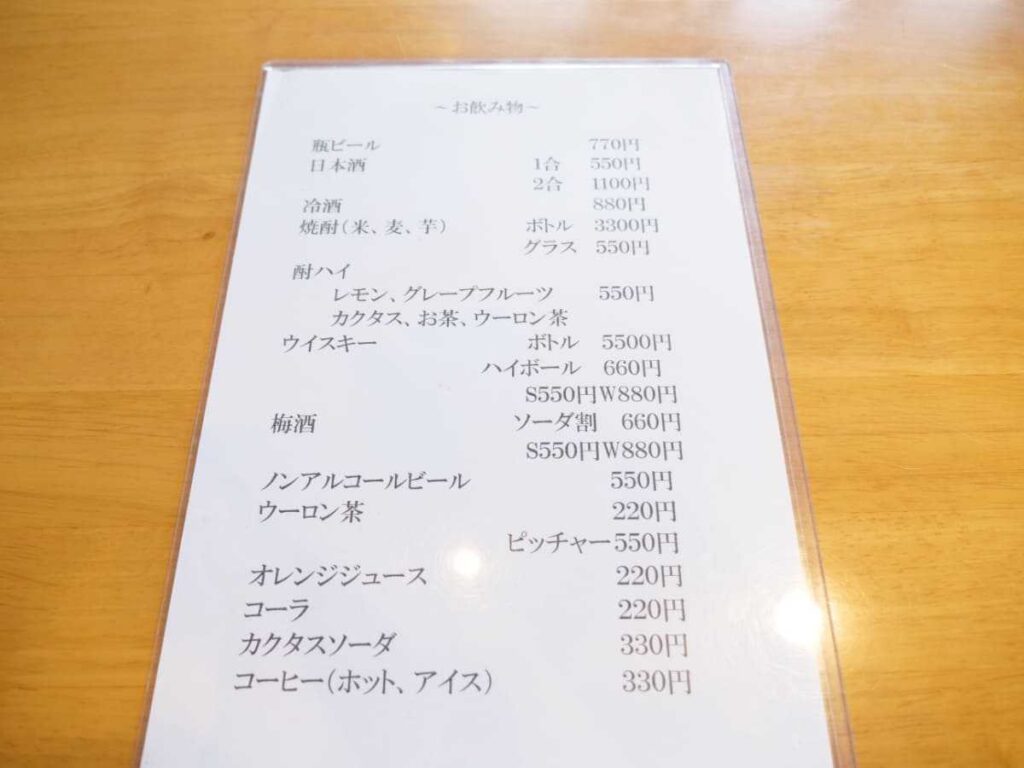 ～お飲み物～
瓶ビール 770円
日本酒 1合 550円
2合 1100円
冷酒 880円
焼酎(米、麦、芋) ボトル 3300円
グラス 550円
酎ハイ
レモン、グレープフルーツ 550円
カクタス、お茶、ウーロン茶
ウイスキー ボトル 5500円
ハイボール 660円
S550円W880円
梅酒 ソーダ割 660円
S550円W880円
ノンアルコールビール 550円
ウーロン茶 220円
ピッチャー550円
オレンジジュース 220円
コーラ 220円
カクタスソーダ 330円
コーヒー(ホット、アイス) 330円